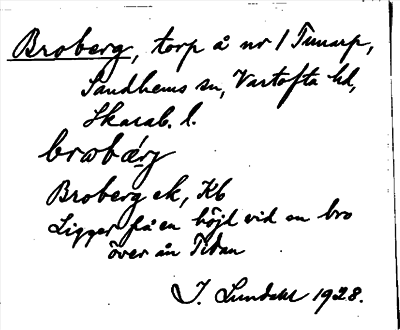 Broberg, torp å nr 1 Timarp,
Sandhems sn, Vartofta hd,
Skarab. l.
brωbárj
Broberg ek, Kb
Ligger på en höjd vid en bro
över ån Tidan
I. Lundahl 1928.